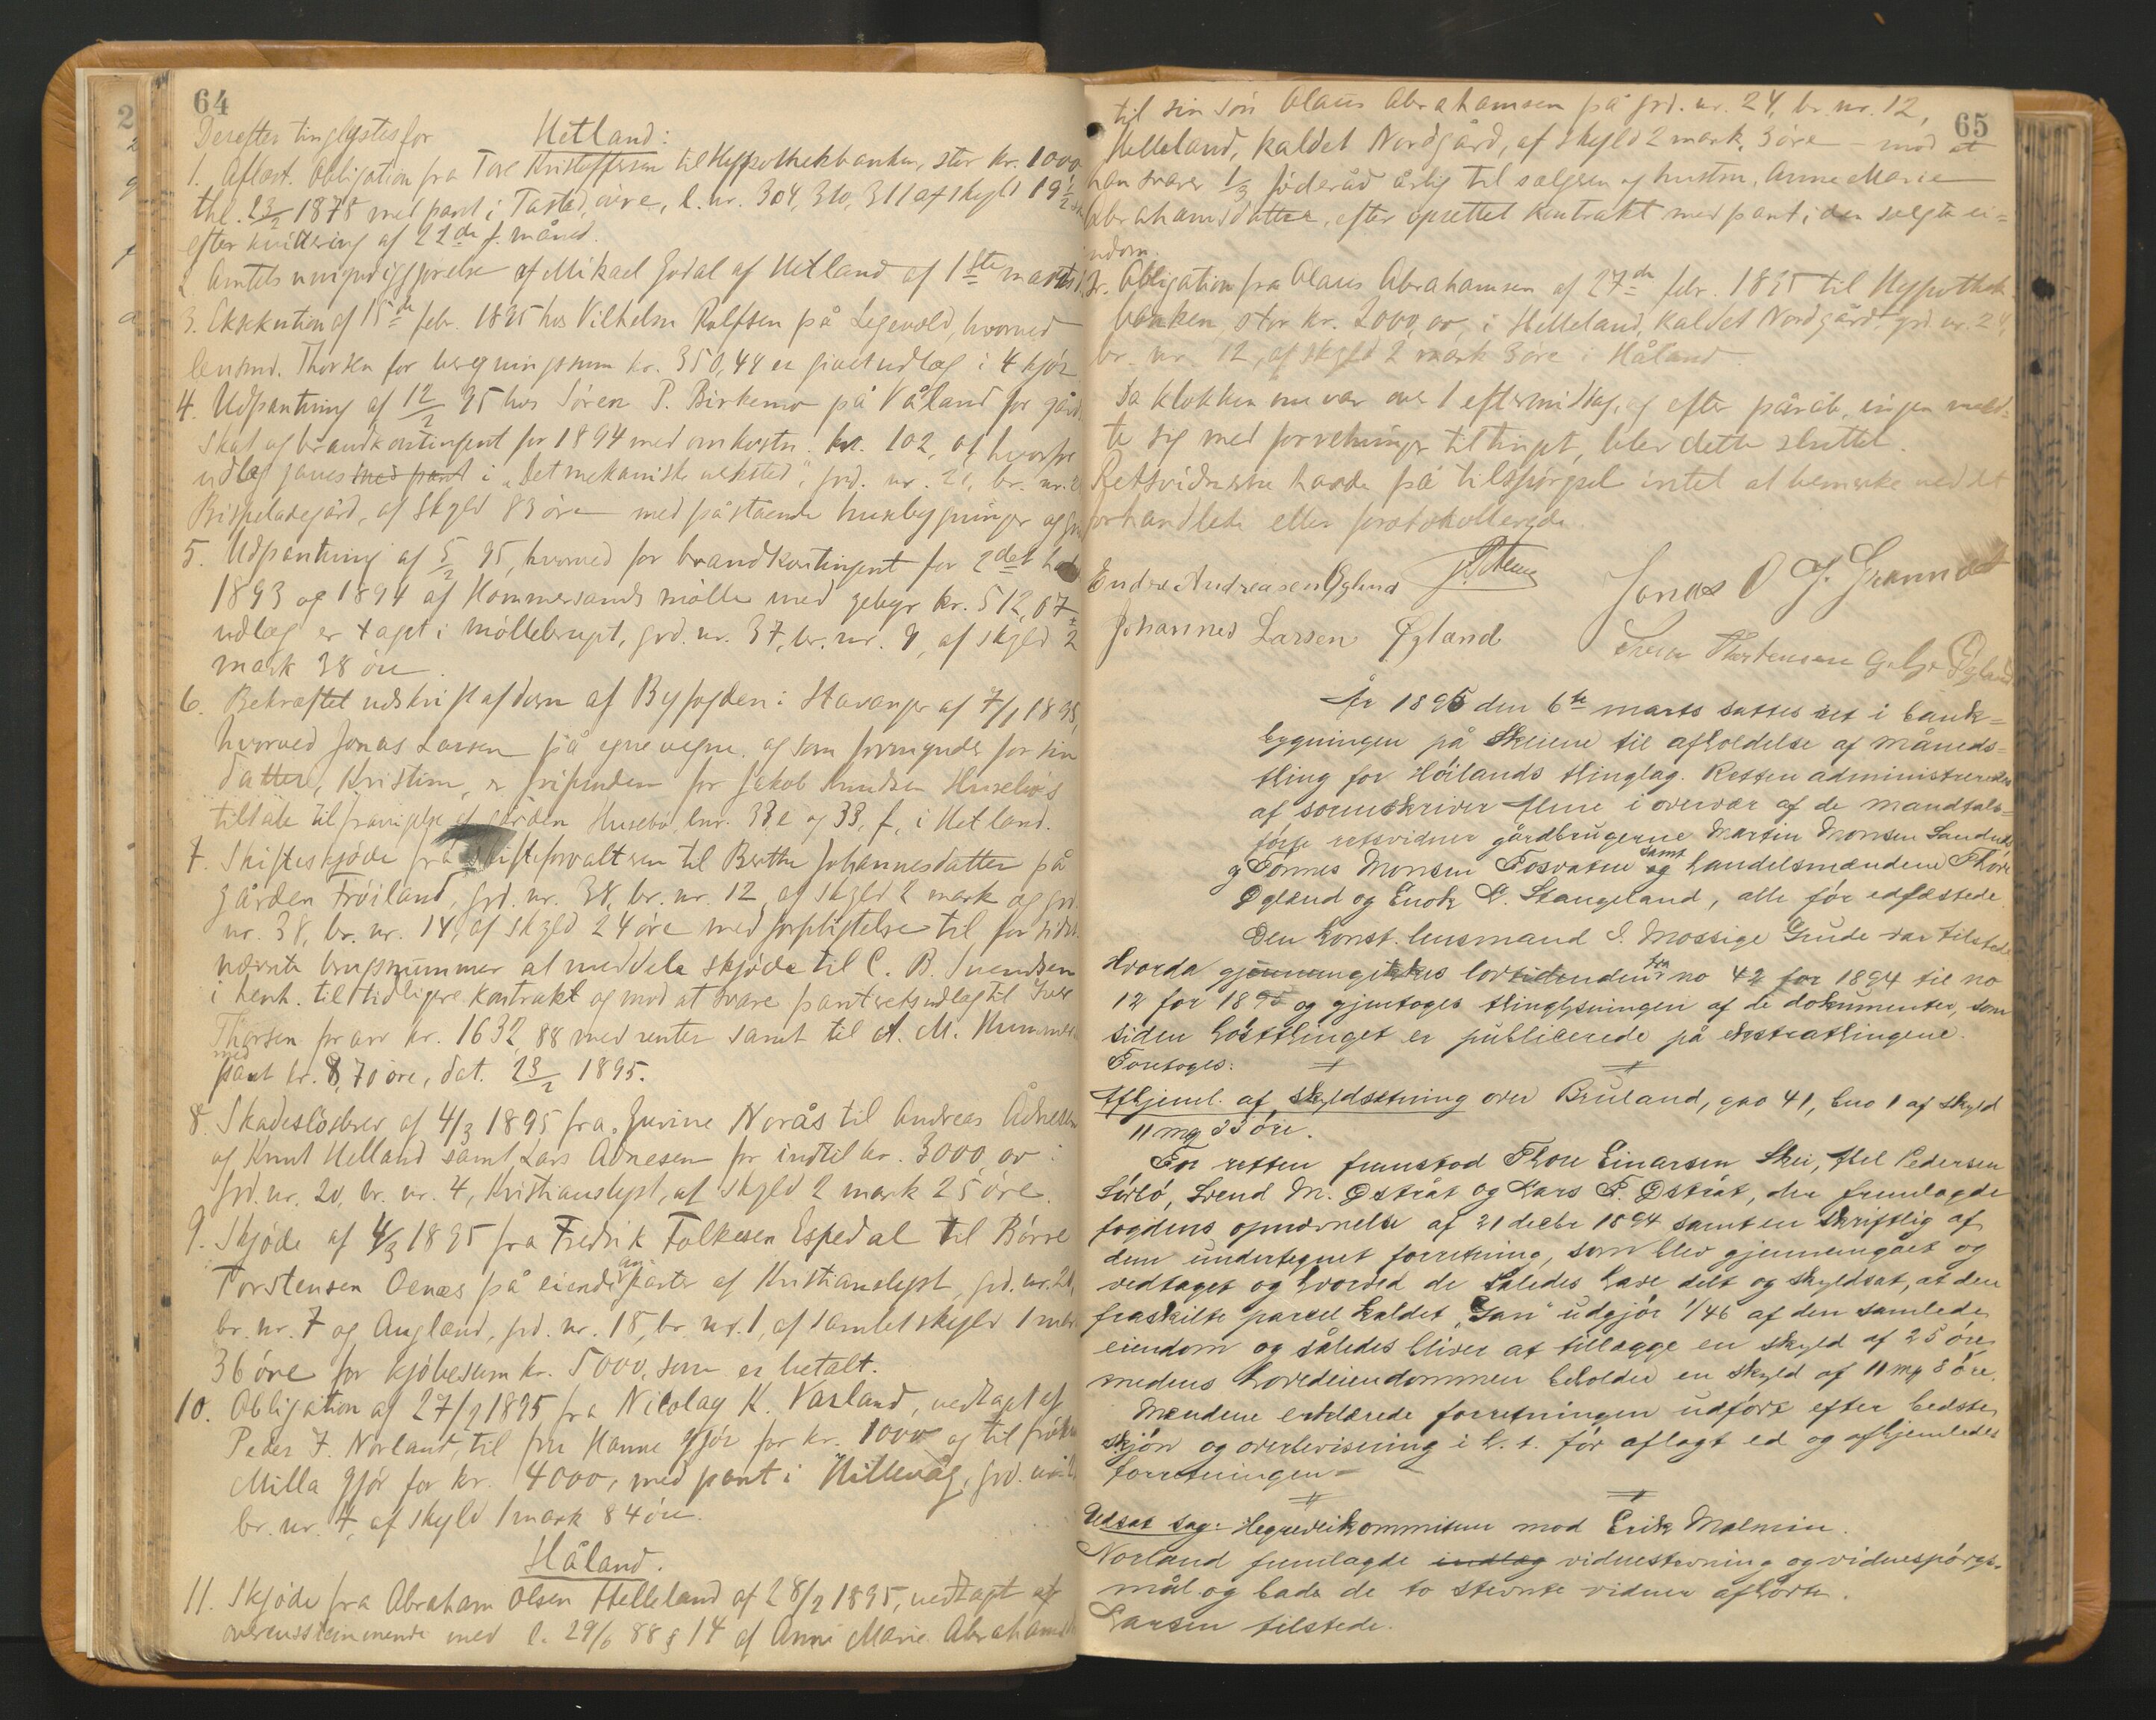 64
Derefter tinglystes for Hetland:
1. Aflæst. Obligation fra Tore Kristoffersen til Hypothekbanken, stor kr. 1000
thl. 23/2 1878 med pant i Tasted, øvre, l. nr. 304, 310, 311 af skyld 19½
efter kvittering af 22de f. måned.
2. Amtets umyndiggjørelse af Mikael Jodal af Hetland af 1ste marts
3. Eksekution af 15de febr. 1895 hos Vilhelm Rolfsen på Legevold, hvorved
lensmd. Thorsen for beregningssum kr. 350,44 er givet udlæg i 4 kjør
4. Udpantning af 12/2 95 hos Sören P. Birkemo på Våland for gård
skat og brandkontingent for 1894 med omkostn. kr. 102, 01 hvorfor
udlæg gaves med pant i "Det mekaniske verksted", grd. nr. 21, br. nr. 2
Bispeladegård, af skyld 83 öre med påstående husbygninger og
5. Udpantning af 5/2 95, hvorved for brandkontingent for 2det hal
1893 og 1894 af Hommersands mölle med gebyr kr. 512,07
udlæg er taget i möllebruget, grd. nr. 37, br. nr. 9, af skyld 2
mark 38 öre
6. Bekræftet udskrift af dom af Byfogden i Stavanger af 7/1 1895,
hvorved Jonas Larsen på egne vegne og som formynder for sin
datter, Kristine, er frifunden for Jakob Knudsen Husebös
tiltale til fravigelse af gården Husebö, lnr. 33, e og 33, f, i Hetland.
7. Skifteskjöde fra skifteforvalteren til Berthe Johannesdatter på
gården Fröiland, grd. nr. 38, br. nr. 12, af skyld 2 mark og grd
nr. 38, br. nr. 14, af skyld 24 öre med forpligtelse til for sidst
nævnte brugsnummer at meddele skjöde til C. B. Svendsen
i henh. til tidligere kontrakt og mod at svare pantretsudlæg til Iver
Thorsen for arv kr. 1632,88 med renter samt til A. M. Hummer
med
pant kr. 8,70 öre, dat. 23/2 1895.
8. Skadeslösbrev af 4/3 1895 fra Gurine Norås til Andreas Ådnesen
og Knut Helland samt Lars Adnesen for indtil kr. 3000,00 i
grd. nr. 20, br. nr. 4, Kristianslyst, af skyld 2 mark 25 öre.
9. Skjöde af 4/3 1895 fra Fredrik Folkesen Espedal til Börre
Torstensen Oenæs på eiendomsparter af Kristianslyst, grd. nr. 20,
br. nr. 7 og Augland, grd. nr. 18, br. nr. 1, af samlet skyld 1 mrk
36 öre for kjöbesum kr. 5000, som er betalt.
10. Obligation af 27/2 1895 fra Nicolay K. Varland, vedtaget af
Peder T. Norland, til fru Hanne Gjör for kr. 1000 og til fröken
Milla Gjör for kr. 4000, med pant i Hillevåg, grd. nr.
br. nr. 4, af skyld 1 mark 84 öre.
Håland.
11. Skjöde fra Abraham Olsen Helleland af 28/2 1895, vedtaget af
overensstemmende med l. 29/6 88 § 14 af Anne Marie Abrahamsd
65
til sin sön Olaus Abrahamsen på grd. nr. 24, br. nr. 12,
Helleland, kaldet Nordgård, af skyld 2 mark, 3 öre – mod at
han svarer 1/3 föderåd årlig til sælgeren og hustru, Anne Marie
Abrahamsdatter, efter oprettet kontrakt med pant i den solgte ei=
endom.
12. Obligation fra Olaus Abrahamsen af 27de febr. 1895 til Hypothek
banken, stor kr. 2000,00, i Helleland, kaldet Nordgård, grd. nr. 24,
br. nr. 12, af skyld 2 mark 3 öre i Håland.
Da klokken nu var over 1 eftermiddag, og efter påråb, ingen meld=
te sig med forretninger til tinget, blev dette sluttet.
Retsvidnerne havde på tilspörgsel intet at bemerke ved det
forhandlede eller protokollerede.
Endre Andreasen Øglend
Jonas O. J. Grannes
Johannes Larsen Øgland
År 1895 den 6te marts sattes ret i bank=
bygningen på Skeiene til afholdelse af måneds=
thing for Höilands thinglag. Retten administreredes
af sorenskriver Hene i overvær af de mandtals=
förte retsvidner gårdbrugerne Martin Monsen Sandnes
og Tönnes Monsen Fosvatne samt og handelsmændene Thore
Øglænd og Enok N. Stangeland, alle för edfæstede.
Den konst. lensmand I. Mossige Grude var tilstede
Hvorda gjennemgikkes lovtidenden fra no 42 for 1894 til no
12 for 1895 og gjentoges thinglysningen af de dokumenter, som
siden hösttinget er publicerede på ekstrathingene.
Foretoges:
Afhjeml. af skyldsætning over Bruland, gno 41, bno 1 af skyld
11 mrk 33 öre.
For retten fremstod Thore Einarsen Skei, Abel Pedersen
Sörbö, Svend M. Østråt og Lars P. Østråt, der fremlagde
fogdens opnævnelse af 21 decbr 1894 samt en skriftlig af
dem undertegnet forretning, som blev gjennemgået og
vedtaget og hvorved de således have delt og skyldsat, at den
fraskilte parcel kaldet "Jari" udgjör 1/46 af den samlede
eiendom og således bliver at tillægge en skyld af 25 öre,
medens hovedeiendommen beholder en skyld af 11 mrk 8 öre.
Mændene erklærede forretningen udfört efter bedste
skjön og overbevisning i h. t. för aflagt ed og afhjemledes
forretningen.
Udsat sag: Hegnedeikommisionen mod Erik Malmin.
Norland fremlagde indlæg vidnestevning og vidnespörgs=
mål og bade de to stevnte vidner afhörte.
Larsen tilstede.